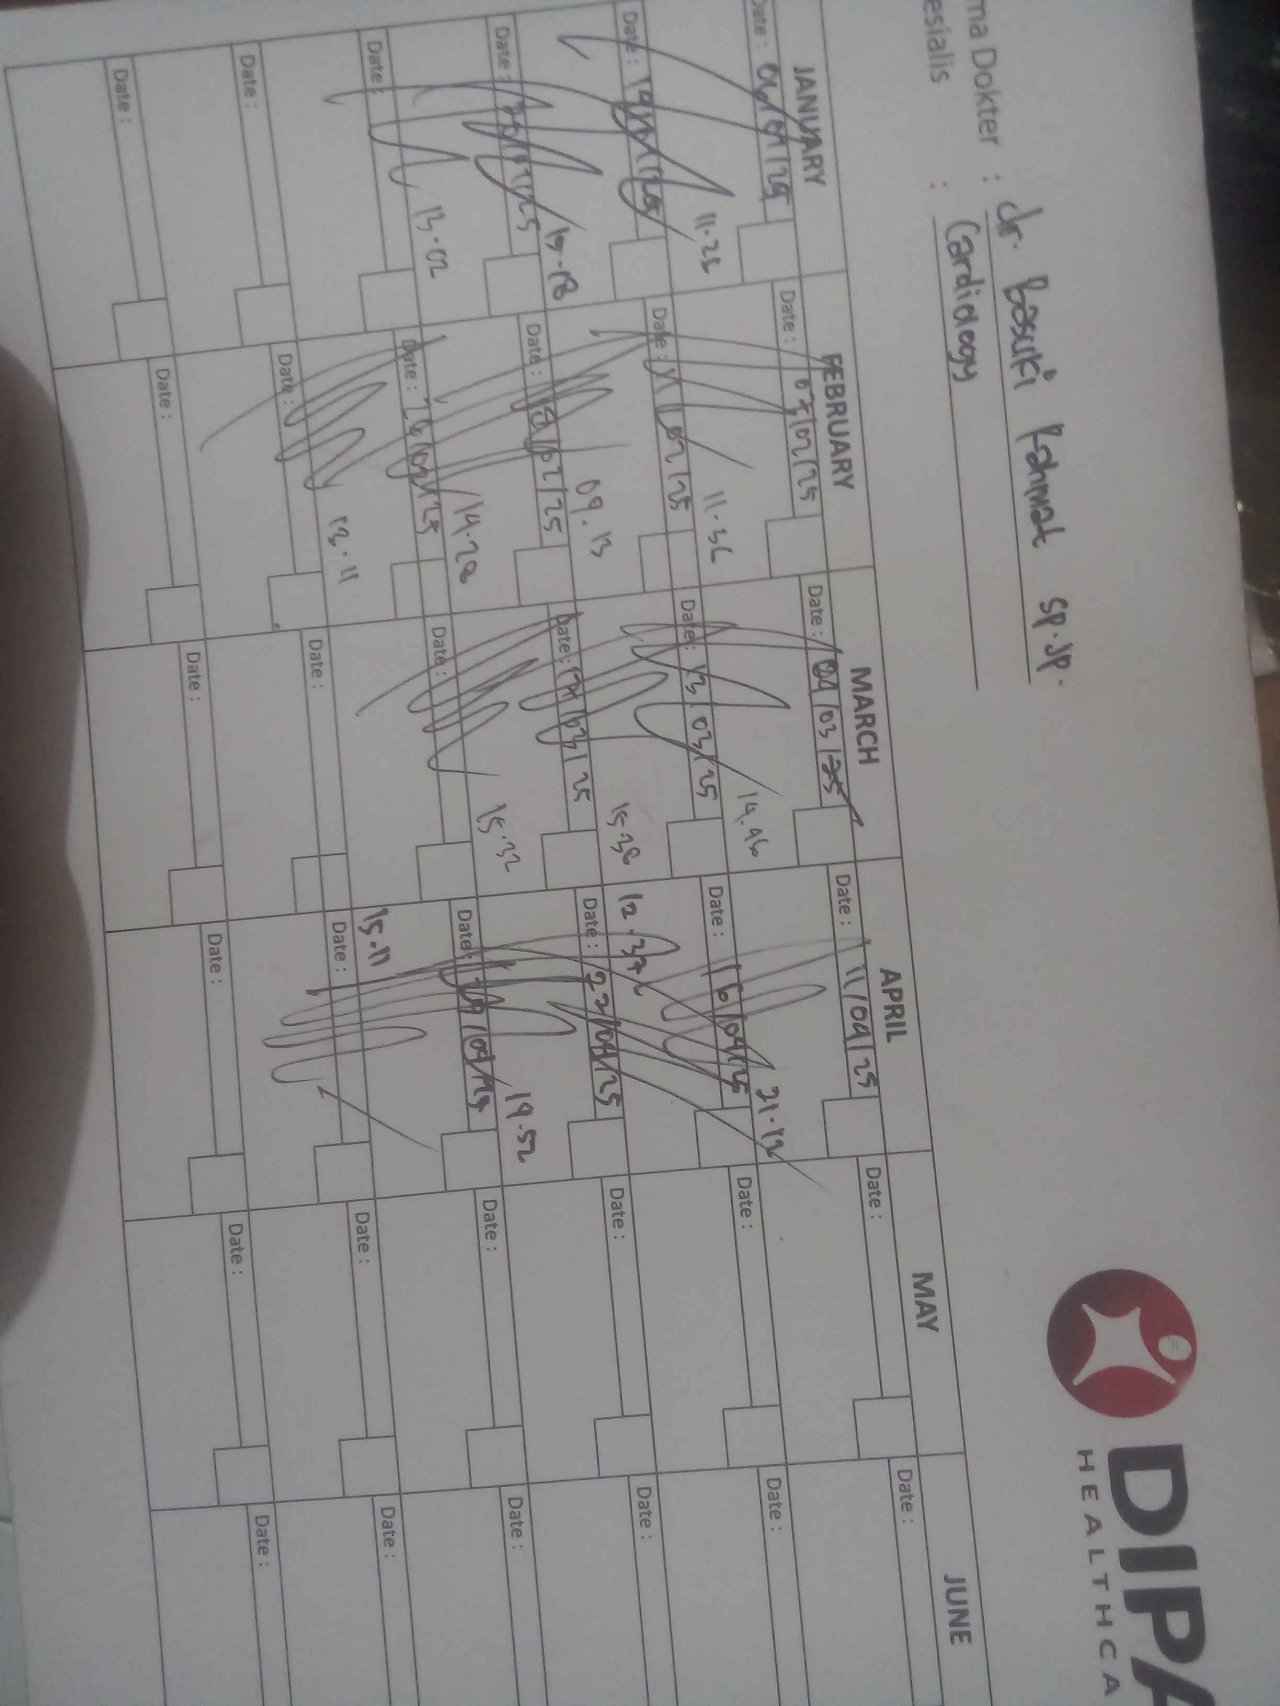 DIPA
HEALTHCA
ma Dokter : dr. Basuki Rahmat Sp.JP.
esialis : Cardiology
JANUARY FEBRUARY MARCH APRIL MAY JUNE
Date : Date : 03/02/25 Date : 04/03/25 Date : 11/04/25 Date : Date :
11.28 11.36 14.46 21.12
Date : Date : 11/02/25 Date : 13/03/25 Date : 16/04/25 Date : Date :
09.13 15.38 12.37
Date : Date : 18/02/25 Date : 17/03/25 Date : 23/04/25 Date : Date :
13.02 14.28 15.32 19.52
Date : Date : 26/02/25 Date : Date : 29/04/25 Date : Date :
13.11 15.11
Date : Date : Date : Date : Date : Date :
Date : Date : Date : Date : Date : Date :